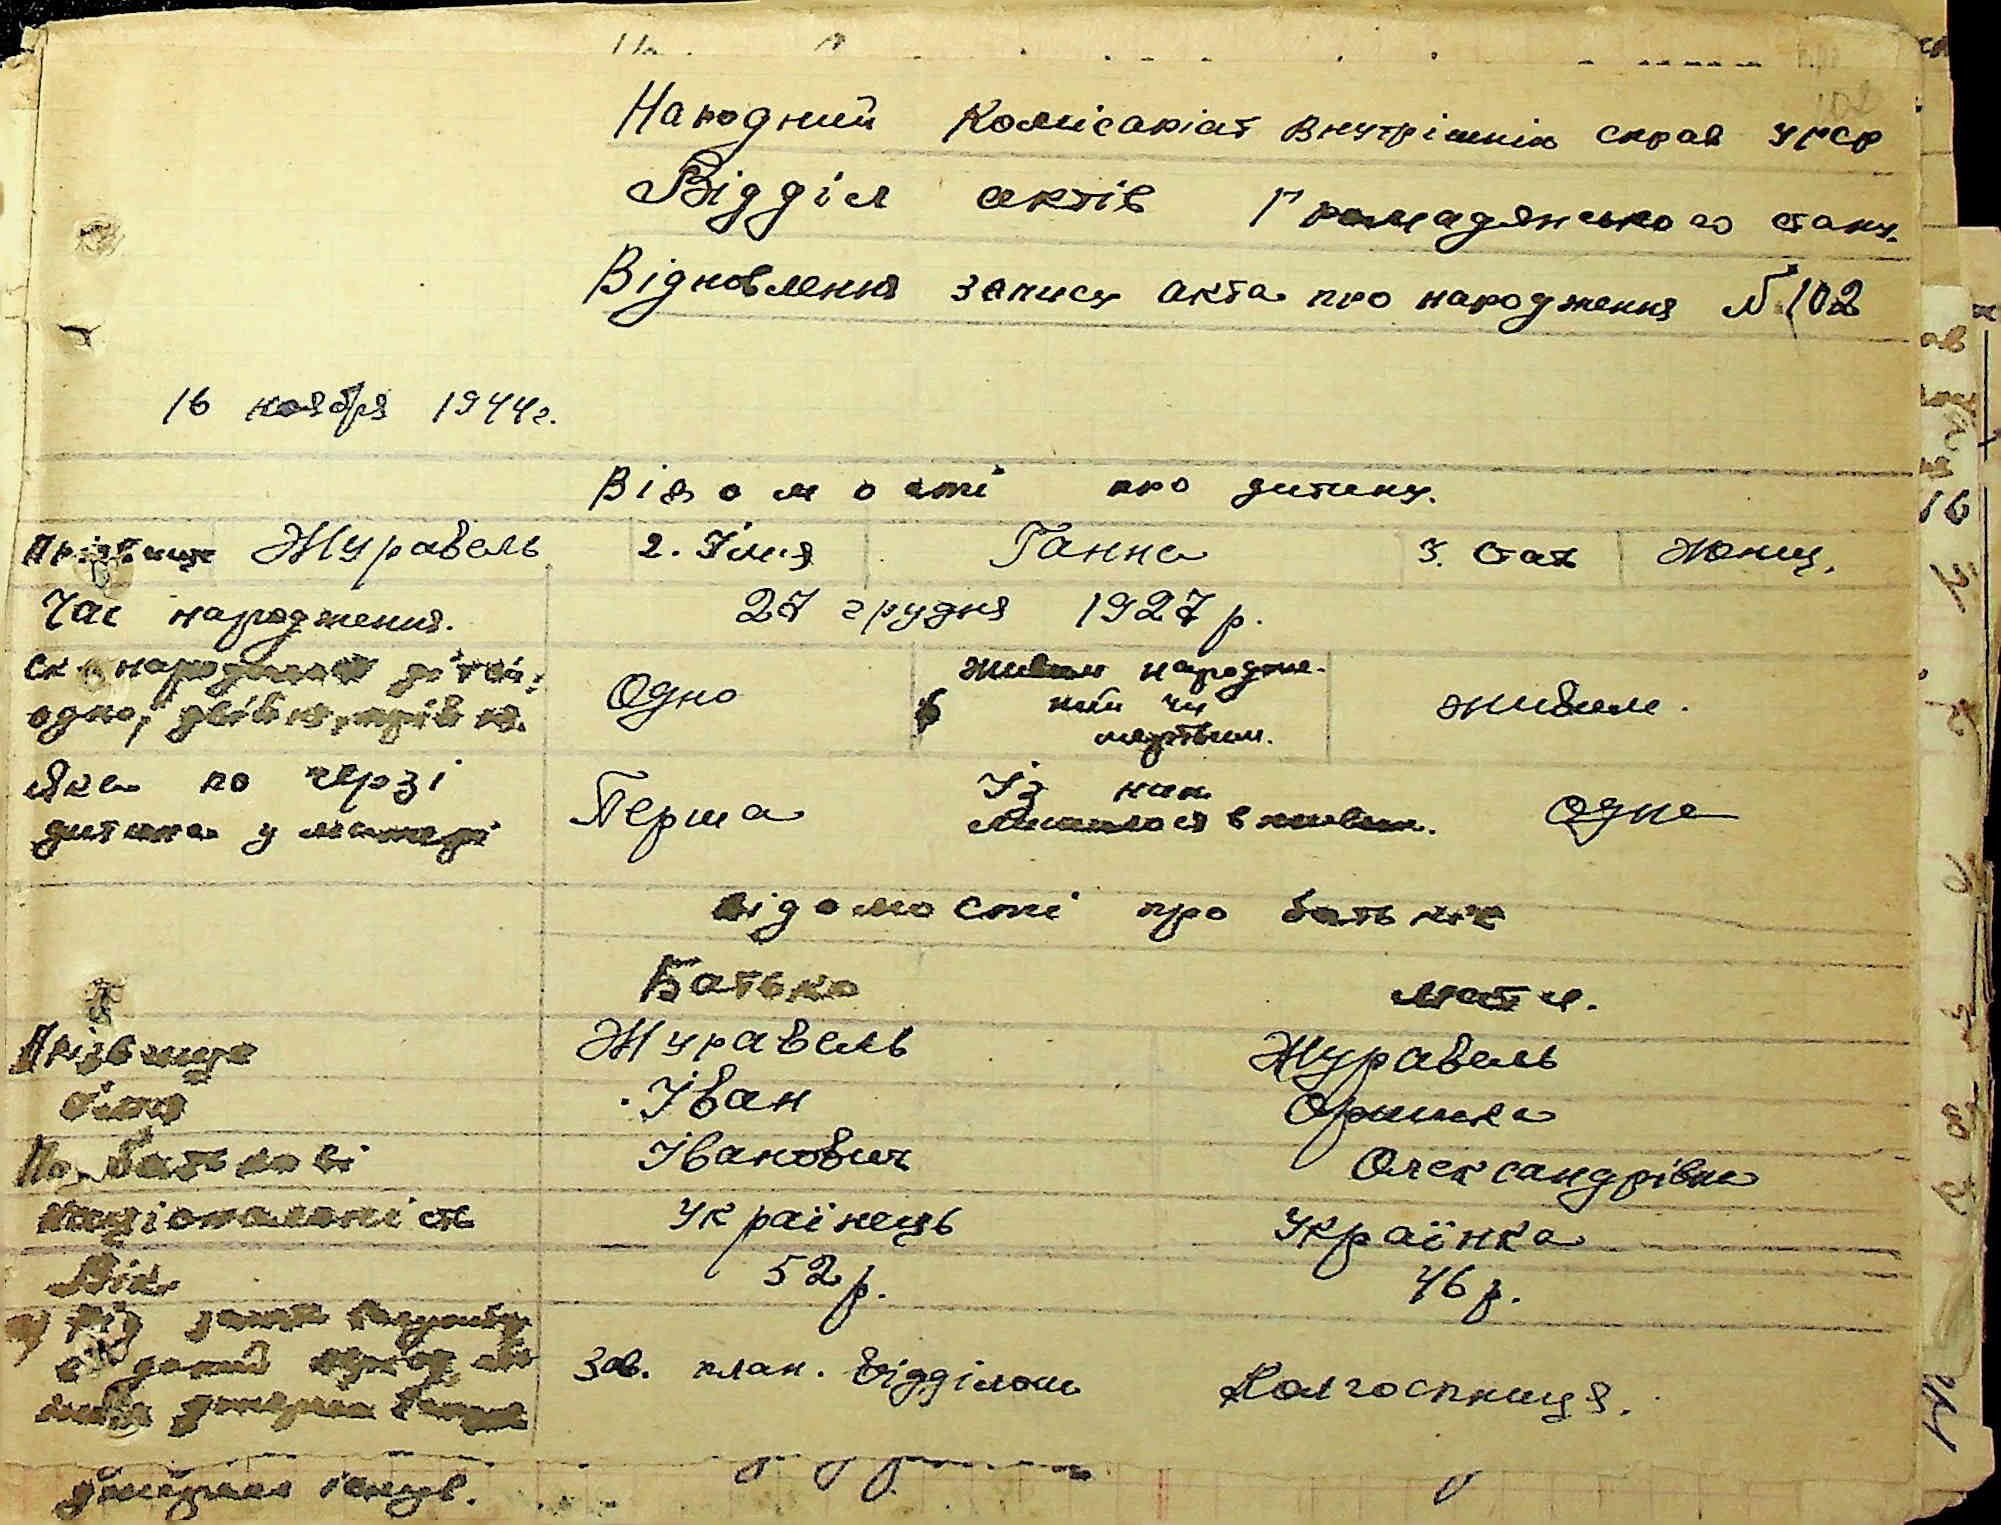 Народний Комісаріат Внутрішніх справ УРСР
Відділ актів Громадянського стану.
Відновлення запису акта про народження №102
16 ноября 1944г.
Відомості про дитину.
Прізвище Журавель 2. Ім'я Ганна 3. Стать Жіноч.
Час народження. 27 грудня 1927 р.
народилося дітей:
одно, двійня, трійня. Одно живим народже-
ний чи
мертвим. живим.
Яка по черзі
дитина у матері Перша Із них
лишилося в живих. Одна
відомості про батьків
Батько мати.
Прізвище Журавель Журавель
Іван Оришка
По батькові Іванович Олександрівна
національність Українець Українка
Вік 52 р. 46 р.
Зав. план. відділом Колгоспниця.